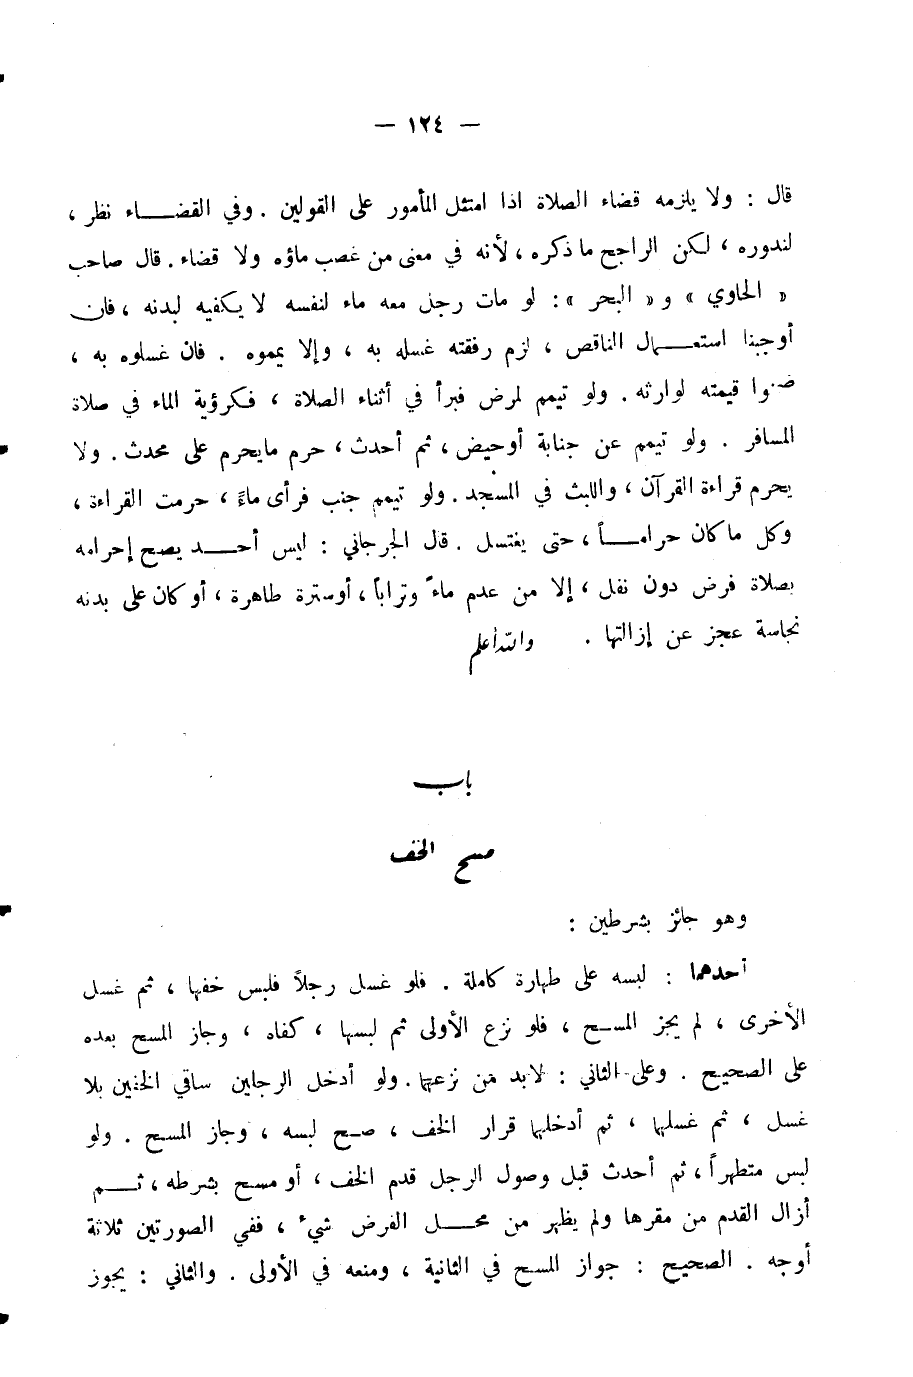 — ١٢٤ —
قال : ولا يلزمه قضاء الصلاة اذا امتثل المأمور على القولين . وفي القضاء نظر ،
لندوره ، لكن الراجح ما ذكره ، لأنه في معنى من غصب ماؤه ولا قضاء . قال صاحب
« الحاوي » و « البحر » : لو مات رجل معه ماء لنفسه لا يكفيه لبدنه ، فان
أوجبنا استعمال الناقص ، لزم رفقته غسله به ، وإلا يمموه . فان غسلوه به ،
ضمنوا قيمته لوارثه . ولو تيمم لمرض فبرأ في أثناء الصلاة ، فكرؤية الماء في صلاة
المسافر . ولو تيمم عن جنابة أوحيض ، ثم أحدث ، حرم مايحرم على محدث . ولا
يحرم قراءة القرآن ، واللبث في المسجد . ولو تيمم جنب فرأى ماءً ، حرمت القراءة ،
وكل ما كان حراماً ، حتى يغتسل . قال الجرجاني : ليس أحد يصح إحرامه
بصلاة فرض دون نفل ، إلا من عدم ماءً وتراباً ، أوسترة طاهرة ، أو كان على بدنه
نجاسة عجز عن إزالتها . والله أعلم
باب
مسح الخف
وهو جائز بشرطين :
أحدهما : لبسه على طهارة كاملة . فلو غسل رجلاً فلبس خفها ، ثم غسل
الأخرى ، لم يجز المسح ، فلو نزع الأولى ثم لبسها ، كفاه ، وجاز المسح بعده
على الصحيح . وعلى الثاني : لابد من نزعهما . ولو أدخل الرجلين ساقي الخفين بلا
غسل ، ثم غسلها ، ثم أدخلها قرار الخف ، صح لبسه ، وجاز المسح . ولو
لبس متطهراً ، ثم أحدث قبل وصول الرجل قدم الخف ، أو مسح بشرطه ، ثم
أزال القدم من مقرها ولم يظهر من محل الفرض شيء ، ففي الصورتين ثلاثة
أوجه . الصحيح : جواز المسح في الثانية ، ومنعه في الأولى . والثاني : يجوز